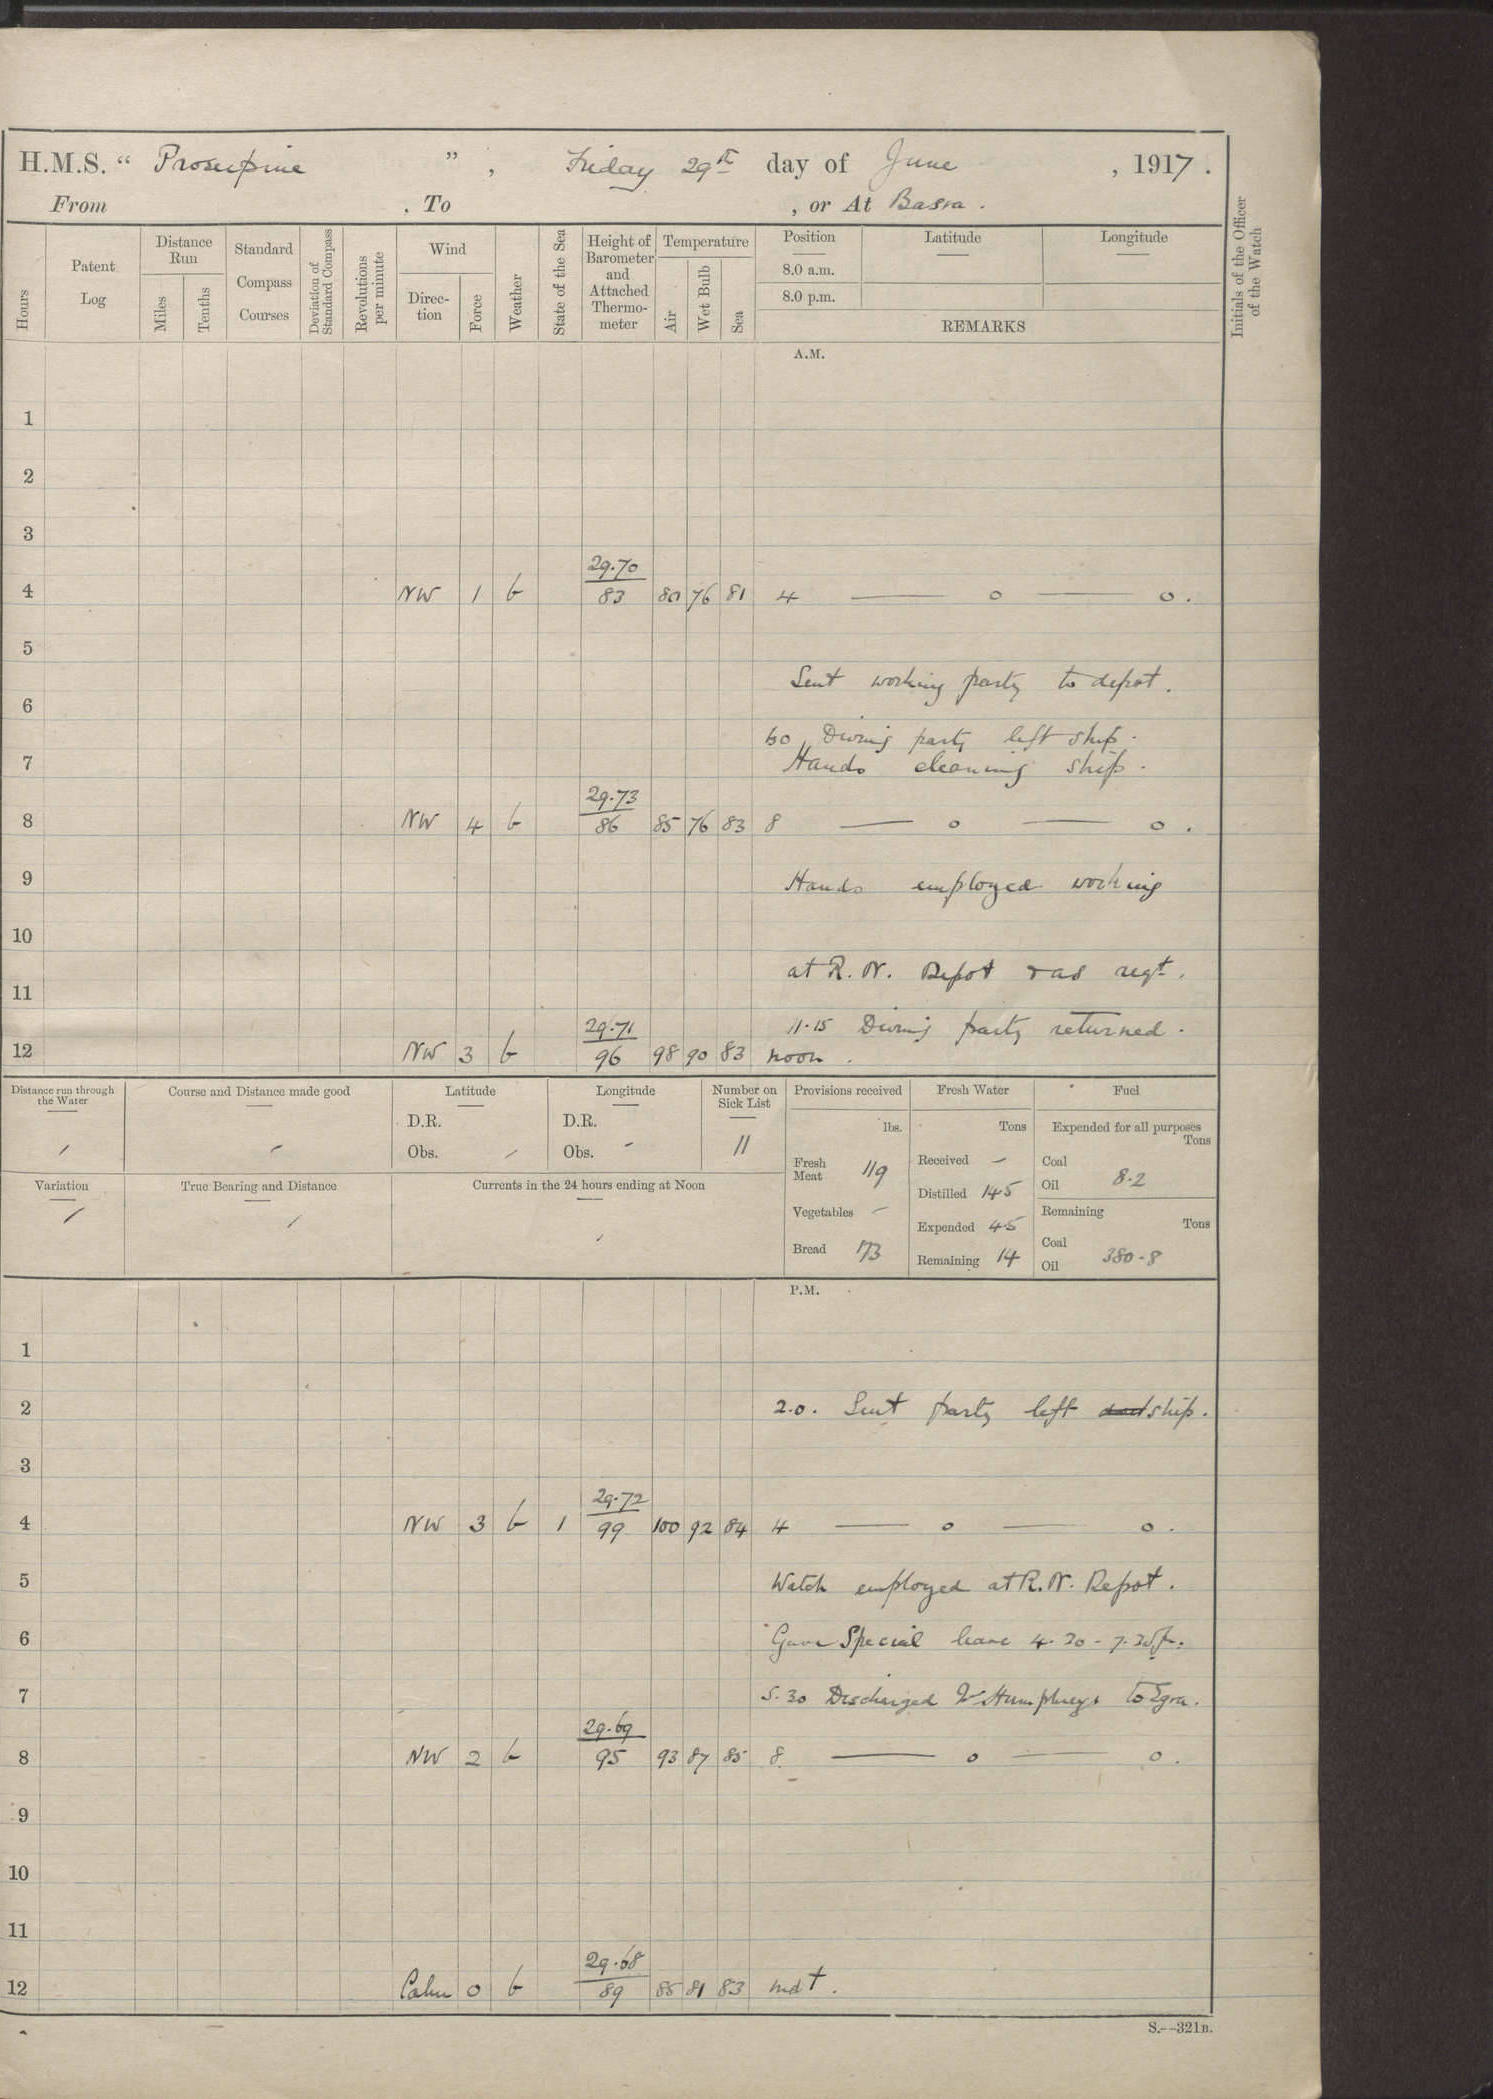 H.M.S. " Proserpine ", Friday 29th day of June, 1917.
From . To , or At Basra.
Hours
Patent Log
Distance Run
Miles
Tenths
Standard Compass Courses
Deviation of Standard Compass
Revolutions per minute
Wind
Direc-tion
Force
Weather
State of the Sea
Height of Barometer and Attached Thermo-meter
Temperature
Air
Wet Bulb
Sea
Position
8.0 a.m.
8.0 p.m.
Latitude
Longitude
REMARKS
Initials of the Officer of the Watch
A.M.
1
2
3
29.70
4 NW 1 b 83 80 76 81 4 — o — o.
5
Sent working party to depot.
6
Diving party left ship.
7 Hands cleaning ship.
29.73
8 NW 4 b 86 85 76 83 8 — o — o.
9 Hands employed working
10
at R.N. Depot & as reqt.
11
29.71 11.15 Diving party returned.
12 NW 3 b 96 98 90 83 noon.
Distance run through the Water
Course and Distance made good
Latitude
D.R.
Obs.
Longitude
D.R.
Obs.
Number on Sick List
11
Variation
True Bearing and Distance
Currents in the 24 hours ending at Noon
Provisions received
lbs.
Fresh Meat 119
Vegetables –
Bread 173
Fresh Water
Tons
Received –
Distilled 145
Expended 45
Remaining 14
Fuel
Expended for all purposes
Tons
Coal
Oil 8.2
Remaining
Tons
Coal
Oil 380.8
P.M.
1
2 2.0. Sent party left ship.
3
29.72
4 NW 3 b 1 99 100 92 84 4 — o — o.
5 Watch employed at R.N. Depot.
6 Gave Special leave 4.30 -
7 5.30 Discharged Humphreys to
29.69
8 NW 2 b 95 93 87 85 8. — o — o.
9
10
11
29.68
12 Calm 0 b 89 85 81 83 mdt.
S.--321B.